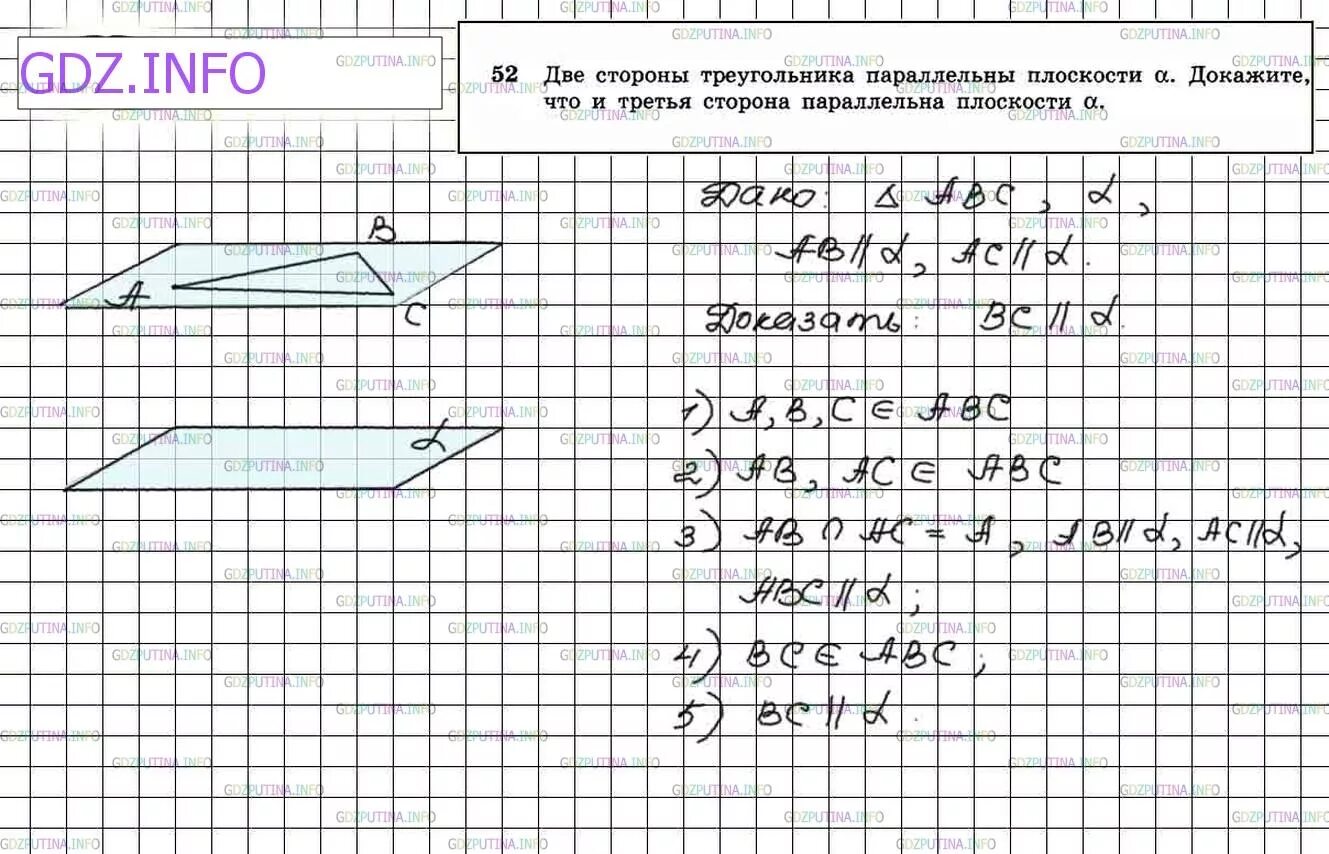 GDZ.INFO
52 Две стороны треугольника параллельны плоскости α. Докажите,
что и третья сторона параллельна плоскости α.
Дано: Δ ABC, α,
AB || α, AC || α.
Доказать: BC || α.
B
A
C
α
1) A, B, C ∈ ABC
2) AB, AC ∈ ABC
3) AB ∩ AC = A, AB || α, AC || α,
ABC || α;
4) BC ∈ ABC;
5) BC || α.
GDZPUTINA.INFO